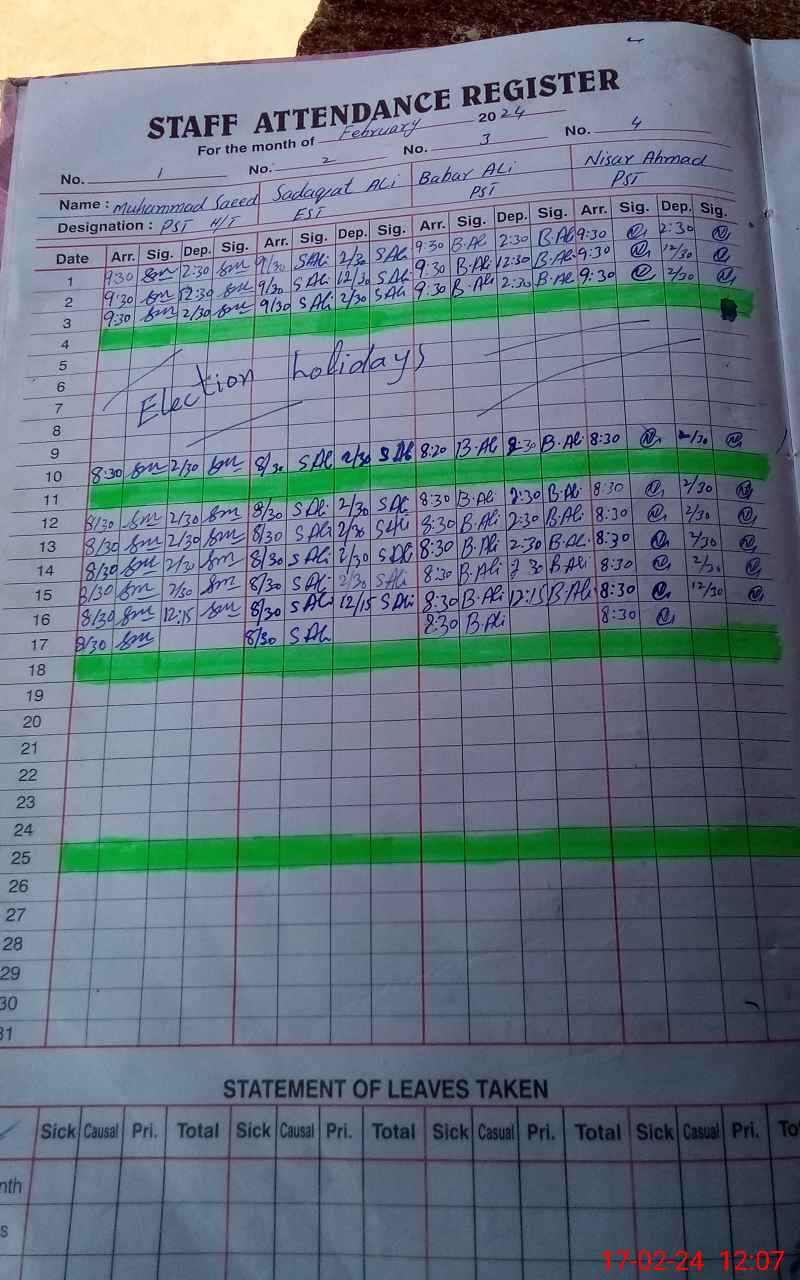 STAFF ATTENDANCE REGISTER
For the month of February 2024
No. 1 No. 2 No. 3 No. 4
Name : Muhammad Saeed Sadaqat Ali Babar Ali Nisar Ahmad
Designation : PST H/T EST PST PST
Date Arr. Sig. Dep. Sig. Arr. Sig. Dep. Sig. Arr. Sig. Dep. Sig. Arr. Sig. Dep. Sig.
1 9:30 2:30 9/30 S Ali 2/30 S Ali 9:30 B.Ali 2:30 B.Ali 9:30 2:30
2 9:30 12:30 9/30 S Ali 12/30 S Ali 9:30 B.Ali 12:30 B.Ali 9:30 12/30
3 9:30 2/30 9/30 S Ali 2/30 S Ali 9:30 B.Ali 2:30 B.Ali 9:30 2/30
4
5
6 Election holidays
7
8
9
10 8:30 2/30 8/30 S Ali 2/30 S Ali 8:20 B.Ali B.Ali 8:30
11
12 8/30 2/30 8/30 S Ali 2/30 S Ali 8:30 B.Ali 2:30 B.Ali 8:30 2/30
13 8/30 2/30 8/30 S Ali 2/30 S Ali 8:30 B.Ali 2:30 B.Ali 8:30 2/30
14 8/30 2/30 8/30 S Ali 2/30 S Ali 8:30 B.Ali 2:30 B.Ali 8:30 2/30
15 8/30 2/30 8/30 S Ali 2/30 S Ali 8:30 B.Ali 2 30 B.Ali 8:30 2/30
16 8/30 12:15 8/30 S Ali 12/15 S Ali 8:30 B.Ali 12:15 B.Ali 8:30 12/30
17 8/30 8/30 S Ali 8:30 B.Ali 8:30
18
19
20
21
22
23
24
25
26
27
28
29
30
31
STATEMENT OF LEAVES TAKEN
Sick Causal Pri. Total Sick Causal Pri. Total Sick Casual Pri. Total Sick Casual Pri. To
nth
s
17-02-24 12:07